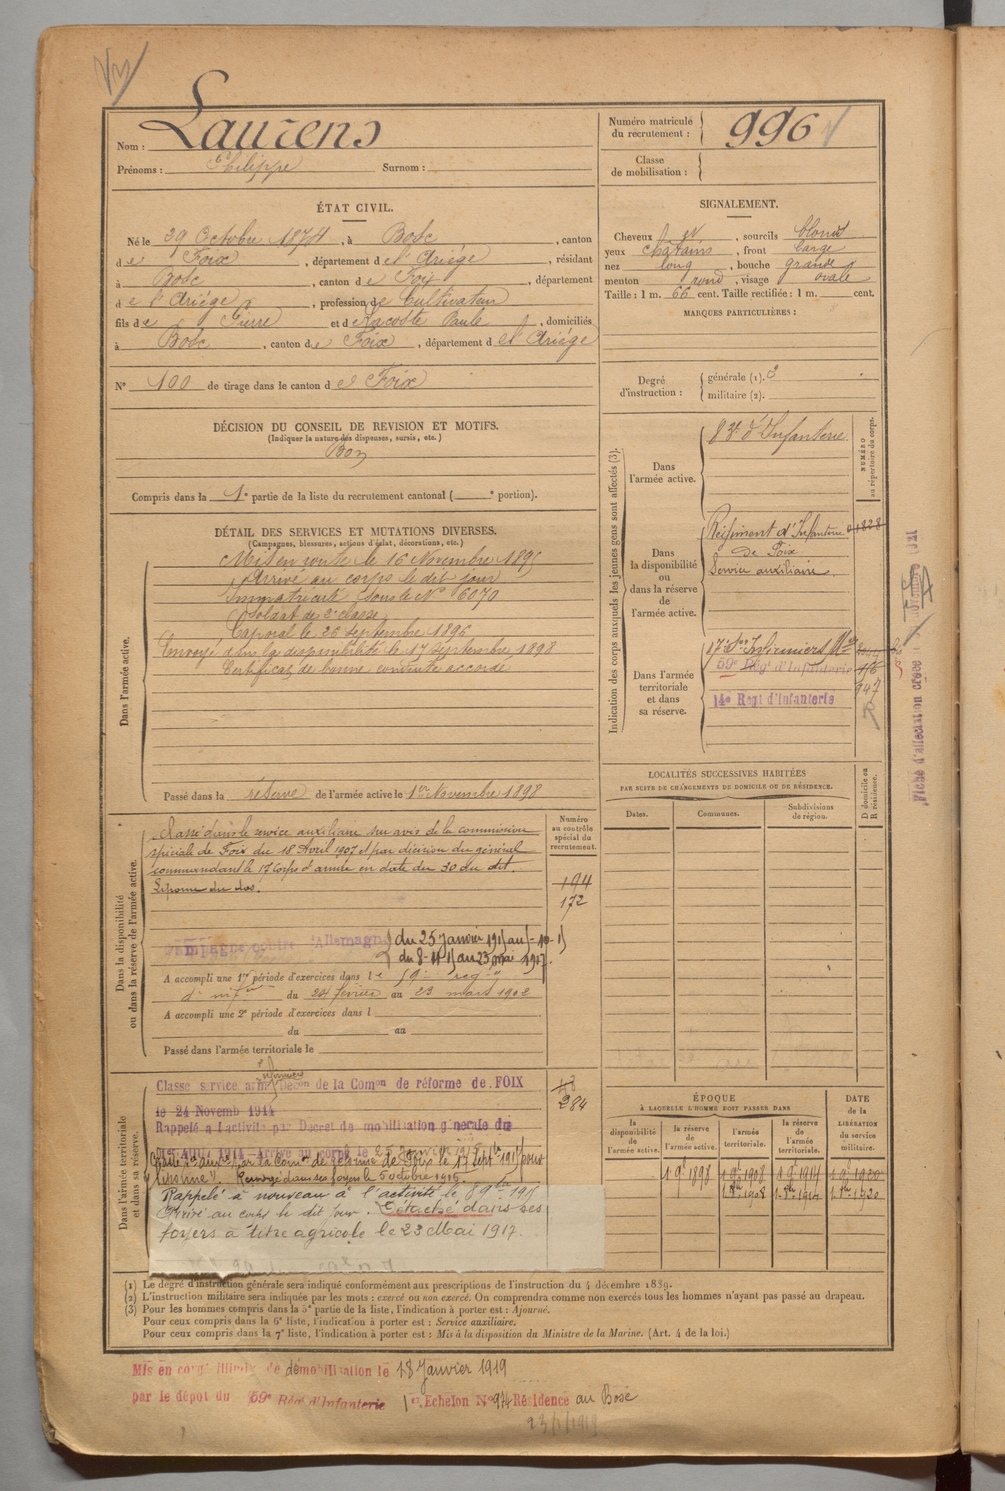 Nom : Laurens
Prénoms : Philippe Surnom :
Numéro matricule du recrutement : 996
Classe de mobilisation :
ÉTAT CIVIL.
Né le 29 Octobre 1874, à Bosc, canton
de Foix, département de l'Ariége, résidant
à Bosc, canton de Foix, département
de l'Ariége, profession de Cultivateur
fils de Pierre et de Lacoste Paule, domiciliés
à Bosc, canton de Foix, département de l'Ariége
N° 100 de tirage dans le canton de Foix
SIGNALEMENT.
Cheveux, sourcils blonds
yeux châtains, front large
nez long, bouche grande
menton rond, visage ovale
Taille : 1 m. 66 cent. Taille rectifiée : 1 m. cent.
MARQUES PARTICULIÈRES :
Degré d'instruction : générale (1). 3
militaire (2).
DÉCISION DU CONSEIL DE REVISION ET MOTIFS.
(Indiquer la nature des dispenses, sursis, etc.)
Bon
Compris dans la 1e partie de la liste du recrutement cantonal ( e portion).
DÉTAIL DES SERVICES ET MUTATIONS DIVERSES.
(Campagnes, blessures, actions d'éclat, décorations, etc.)
Dans l'armée active.
Mis en route le 16 Novembre 1895
Arrivé au corps le dit jour
Immatriculé sous le N° 6070
Soldat de 2e classe
Caporal le 26 Septembre 1896
Envoyé dans la disponibilité le 17 Septembre 1898
Certificat de bonne conduite accordé
Passé dans la réserve de l'armée active le 1er Novembre 1898
Indication des corps auxquels les jeunes gens sont affectés (3).
NUMÉRO au répertoire du corps.
Dans l'armée active.
83e d'Infanterie
Dans la disponibilité ou dans la réserve de l'armée active.
Régiment d'Infanterie 1828
de Foix
Service auxiliaire
Dans l'armée territoriale et dans sa réserve.
17e Son Infirmiers
59e Régt d'Infanterie
14e Regt d'Infanterie
947
Fiche d'affectation créée
LOCALITÉS SUCCESSIVES HABITÉES
PAR SUITE DE CHANGEMENTS DE DOMICILE OU DE RÉSIDENCE.
Dates. Communes. Subdivisions de région. D domicile ou R résidence.
Dans la disponibilité ou dans la réserve de l'armée active.
Numéro au contrôle spécial du recrutement.
Passé dans le service auxiliaire sur avis de la commission
spéciale de Foix du 18 Avril 1907 et par décision du général
commandant le 17e Corps d'armée en date du 30 du dit.
Lipome du dos.
194
172
Campagne contre l'Allemagne du 25 Janvier 1915 au 5-10-15
du 8-11-15 au 23 mai 1917.
A accompli une 1re période d'exercices dans le 59e régt
d'infie du 24 février au 23 mars 1902
A accompli une 2e période d'exercices dans l
du au
Passé dans l'armée territoriale le
Dans l'armée territoriale et dans sa réserve.
Classé service armé Décon de la Comon de réforme de FOIX
le 24 Novemb 1914
Rappelé a l'activite par Decret de mobilisation génerale du
1er Aout 1914 Arrivé au corps le 25 Janvier 1915
Renvoyé dans ses foyers le 5 octobre 1915.
Rappelé à nouveau à l'activité le 8 9bre 1915
Arrivé au corps le dit jour. Détaché dans ses
foyers à titre agricole le 23 Mai 1917.
284
ÉPOQUE
À LAQUELLE L'HOMME DOIT PASSER DANS
la disponibilité de l'armée active. la réserve de l'armée active. l'armée territoriale. la réserve de l'armée territoriale.
DATE de la LIBÉRATION du service militaire.
1 9e 1898 1 9e 1908 1 9e 1914 1 9e 1920
1 8bre 1908 1 8bre 1914 1 8bre 1920
(1) Le degré d'instruction générale sera indiqué conformément aux prescriptions de l'instruction du 4 décembre 1889.
(2) L'instruction militaire sera indiquée par les mots : exercé ou non exercé. On comprendra comme non exercés tous les hommes n'ayant pas passé au drapeau.
(3) Pour les hommes compris dans la 5e partie de la liste, l'indication à porter est : Ajourné.
Pour ceux compris dans la 6e liste, l'indication à porter est : Service auxiliaire.
Pour ceux compris dans la 7e liste, l'indication à porter est : Mis à la disposition du Ministre de la Marine. (Art. 4 de la loi.)
Mis en congé illimité de démobilisation le 18 Janvier 1919
par le dépot du 59e Régt d'Infanterie 1er Echelon N° 94 Résidence au Bosc
23/1/1919